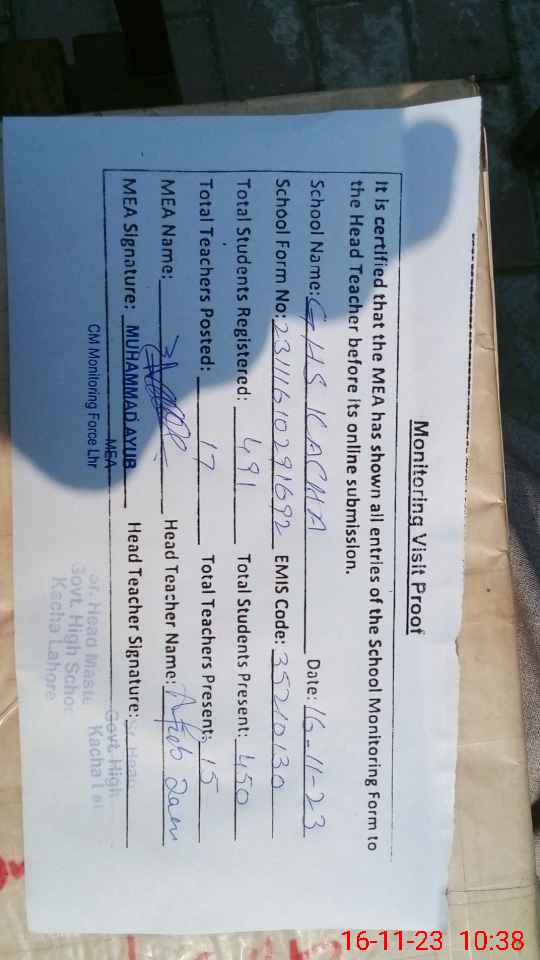 Monitoring Visit Proof
It is certified that the MEA has shown all entries of the School Monitoring Form to
the Head Teacher before its online submission.
School Name: GHS KACHA Date: 16-11-23
School Form No: 23111610291692 EMIS Code: 35210130
Total Students Registered: 491 Total Students Present: 450
Total Teachers Posted: 17 Total Teachers Present: 15
MEA Name: Head Teacher Name:
MEA Signature: MUHAMMAD AYUB Head Teacher Signature: Sr. Head
MEA Govt. High
CM Monitoring Force Lhr Kacha La
Sr. Head Maste
Govt. High Schoo
Kacha Lahore
16-11-23 10:38